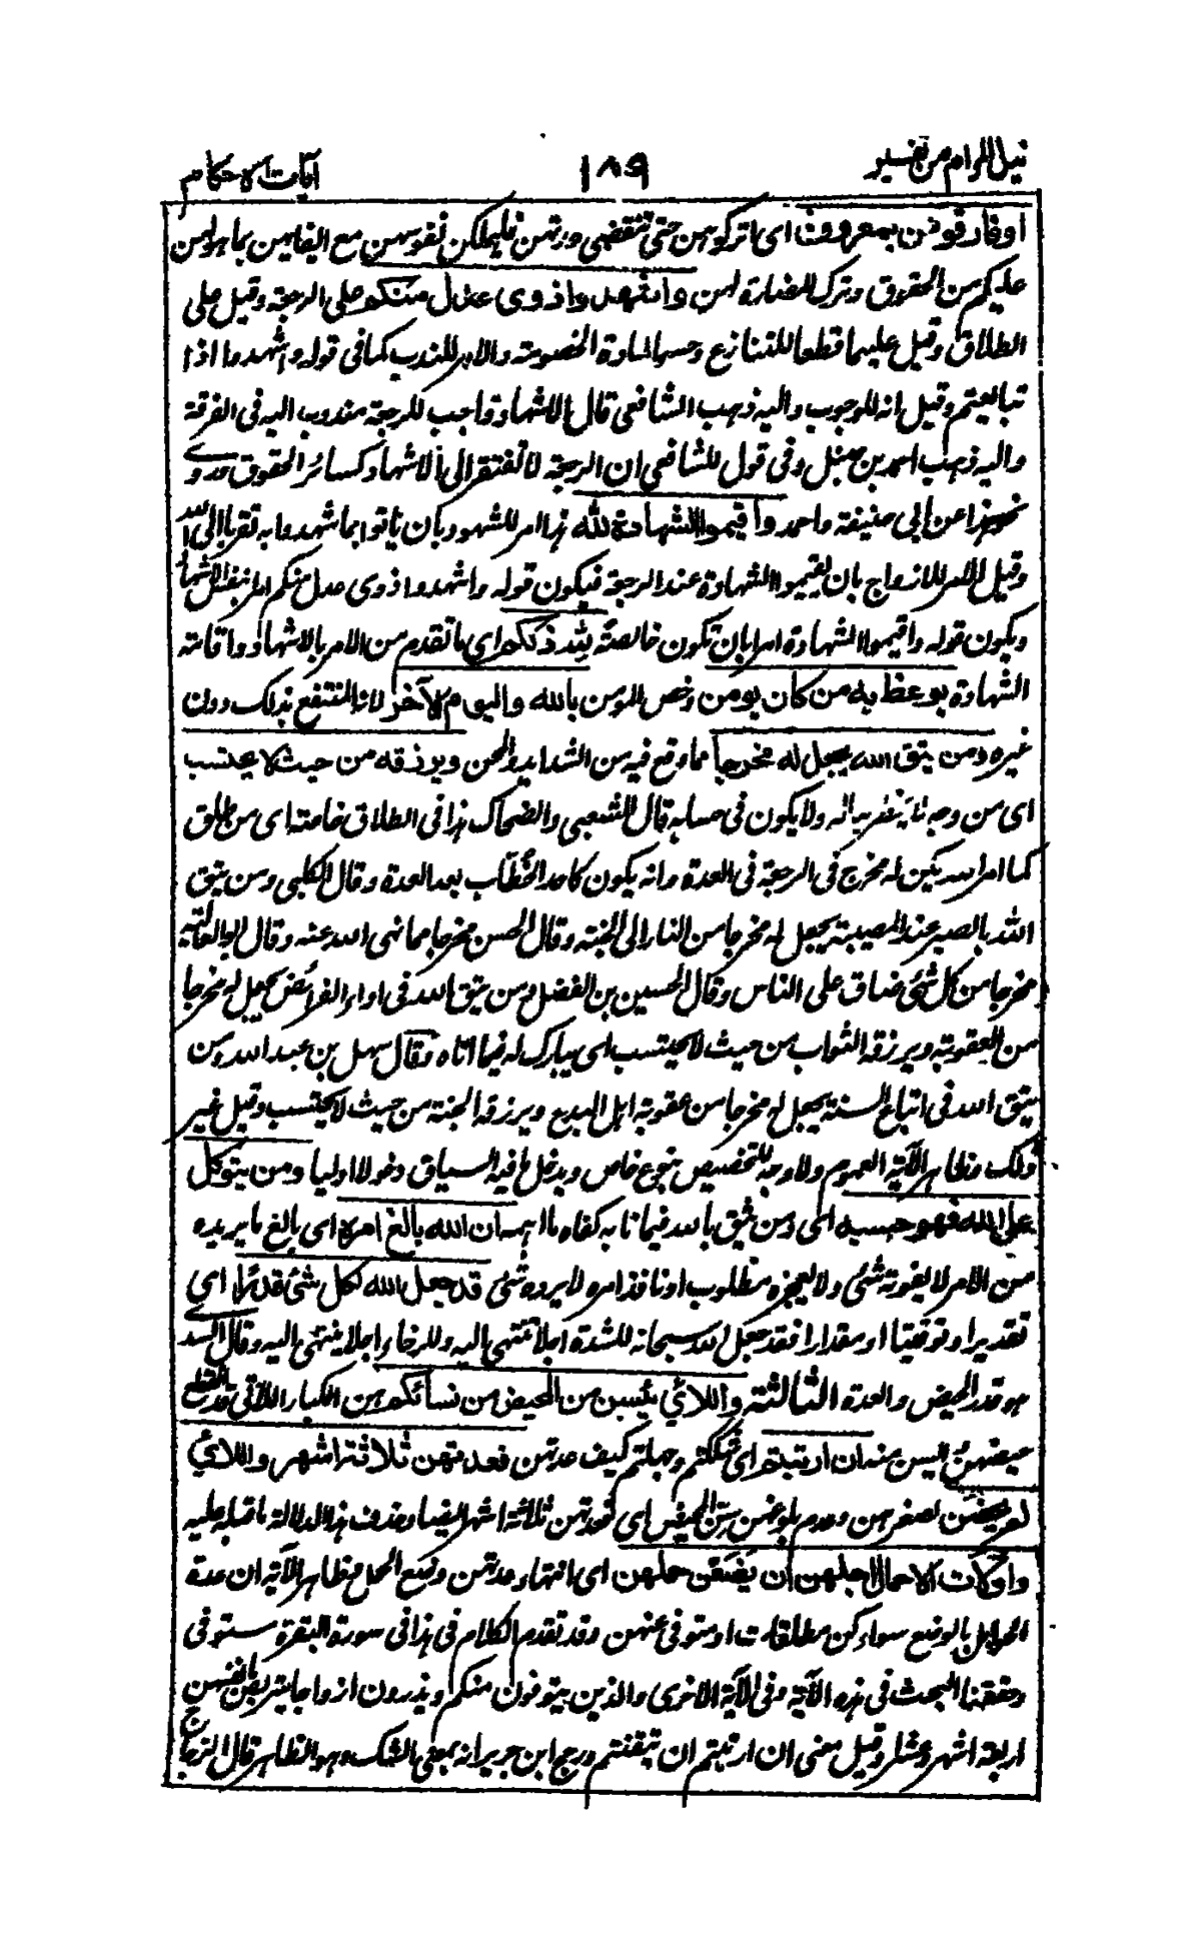 نيل المرام من تفسير ١٨٩ آيات الاحكام
او فارقوهن بمعروف اى اتركوهن حتى تنقضى عدتهن فيملكن نفوسهن مع ايفائهن بما هو لهن
عليكم من الحقوق وترك المضارة لهن واشهدوا ذوى عدل منكم على الرجعة وقيل على
الطلاق وقيل عليهما قطعا للتنازع وحسما لمادة الخصومة والامر للندب كما فى قوله واشهدوا اذا
تبايعتم وقيل انه للوجوب واليه ذهب الشافعى قال الاشهاد واجب للرجعة مندوب اليه فى الفرقة
واليه ذهب احمد بن حنبل وفى قول للشافعى ان الرجعة لا تفتقر الى الاشهاد كسائر الحقوق وروى
نحو هذا عن ابى حنيفة واحمد واقيموا الشهادة لله هذا امر للشهود بان ياتوا بما شهدوا به تقربا الى الله
وقيل الامر للازواج بان يقيموا الشهادة عند الرجعة فيكون قوله واشهدوا ذوى عدل منكم امرا بنفس الاشهاد
ويكون قوله واقيموا الشهادة امرا بان تكون خالصة لله ذلكم اى ما تقدم من الامر بالاشهاد واقامة
الشهادة يوعظ به من كان يومن وخص المومن بالله واليوم الآخر لانه المنتفع بذلك دون
غيره ومن يتق الله يجعل له مخرجا مما وقع فيه من الشدايد والمحن ويرزقه من حيث لا يحتسب
اى من وجه لا يخطر بباله ولا يكون فى حسابه قال الشعبى والضحاك هذا فى الطلاق خاصة اى من طلق
كما امر الله يكن له مخرج فى الرجعة فى العدة وانه يكون كاحد الخطّاب بعد العدة وقال الكلبى ومن يتق
الله بالصبر عند المصيبة يجعل له مخرجا من النار الى الجنة وقال الحسن مخرجا مما نهى الله عنه وقال ابو العالية
مخرجا من كل شئ ضاق على الناس وقال الحسين بن الفضل ومن يتق الله فى اداء الفرائض يجعل له مخرجا
من العقوبة ويرزقه الثواب من حيث لا يحتسب اى يبارك له فيما اتاه وقال سهل بن عبد الله ومن
يتق الله فى اتباع السنة يجعل له مخرجا من عقوبة اهل البدع ويرزقه الجنة من حيث لا يحتسب وقيل غير
ذلك وظاهر الآية العموم ولا وجه للتخصيص بنوع خاص ويدخل ما فيه السياق دخولا اوليا ومن يتوكل
على الله فهو حسبه اى ومن يثق بالله فيما نابه كفاه ما اهمه ان الله بالغ امره اى بالغ ما يريده
من الامر لا يفوته شئ ولا يعجزه مطلوب او نافذ امره لا يرده شئ قد جعل الله لكل شئ قدرًا اى
تقديرا وتوقيتا او مقدارا فقد جعل الله سبحانه للشدة اجلا تنتهى اليه وللرخاء اجلا ينتهى اليه وقال السدى
هو قدر الحيض والعدة الثالثة واللائي يئسن من المحيض من نسائكم هن الكبار اللاتى قد انقطع
حيضهن وايسن منه ان ارتبتم اى شككتم وجهلتم كيف عدتهن فعدتهن ثلاثة اشهر واللائي
لم يحضن لصغرهن وعدم بلوغهن سن المحيض اى فعدتهن ثلاثة اشهر ايضا وحذف هذا لدلالة ما قبله عليه
واولات الاحمال اجلهن ان يضعن حملهن اى انتهاء عدتهن وضع الحمل وظاهر الآية ان عدة
الحوامل بالوضع سواء كن مطلقات او متوفى عنهن وقد تقدم الكلام فى هذا فى سورة البقرة مستوفى
وحققنا البحث فى هذه الآية وفى الآية الاخرى والذين يتوفون منكم ويذرون ازواجا يتربصن بانفسهن
اربعة اشهر وعشرا وقيل معنى ان ارتبتم ان تيقنتم ورجح ابن جرير انه بمعنى الشك وهو الظاهر قال الزجاج